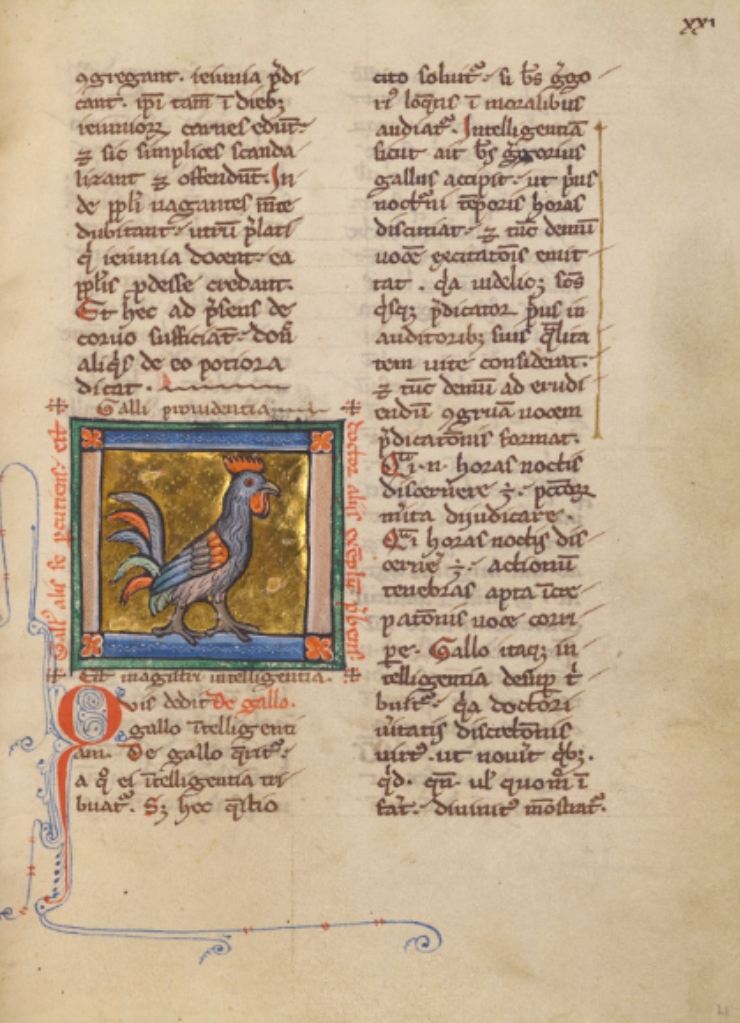 xxi
ꝯgregant. ieiunia p̄di
cant. ip̄i tam̄ ī diebꝫ
ieiunioꝝ carnes edūt.
⁊ sic simplices scanda
lizant ⁊ offendūt. In
de ppl̄i uagantes m̄te
dubitant. utrū p̄lati
q̇ ieiunia docent. ea
ppl̄is ꝓdesse credant.
Et hec ad p̄sens de
coruo sufficiāt. don̄
aliq̇s de eo potiora
dicat.
Galli prouidentia
Gallꝰ alis se ꝑcutiens. est
doctor aliis exēplū p̄bens
Est magistri intelligentia.
Quis dedit De gallo.
gallo ītelligenti
am. De gallo q̄rit᷑.
a q̊ ei ītelligentia tri
buat᷑. Sꝫ hec q̄stio
cito soluit᷑. si b̄s g̃go
riꝰ loq̄ns ī moralibus
audiat᷑. Intelligentiā
sicut ait b̄s g̃gorius
gallus accipit. ut ṗus
noct̄ni tēporis horas
discutiat. ⁊ tūc demū
uocē excitatōis emit
tat. q̇a uidelicꝫ sc̄s
q̇sqꝫ p̄dicator ṗus in
auditoribꝫ suis q̄lita
tem uite considerat.
⁊ tūc demū ad erudi
endū ꝯgruā uocem
p̄dicatōnis format.
Q̄i .n. horas noctis
discernere ē. pcc̄oꝝ
m̄ita diiudicare.
Q̄i horas noctis dis
cernē ē. actionū
tenebras apta īcre
patōnis uoce corri
pe. Gallo itaqꝫ in
telligentia desuꝑ t̄
buit᷑. q̇a doctori
ūitatis discretōnis
uirt᷑. ut nouīt q̇bꝫ.
q̇d. qn̄. ul̄ quom̊ ī
ferat. diuinitꝰ mīstrat᷑.